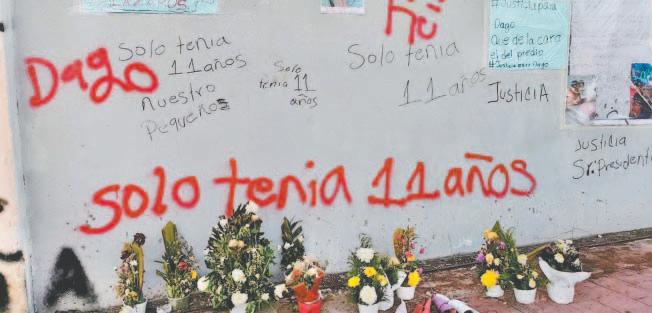 #Justicia para
Dago
Que de la cara
el del predio
#Justicia para Dago
Dago
Solo tenia
11 años
nuestro
Pequeños
Solo
tenia 11
años
Solo tenia
11 años
JUSTICIA
JUSTICIA
Sr. President
Solo tenia 11 años
A